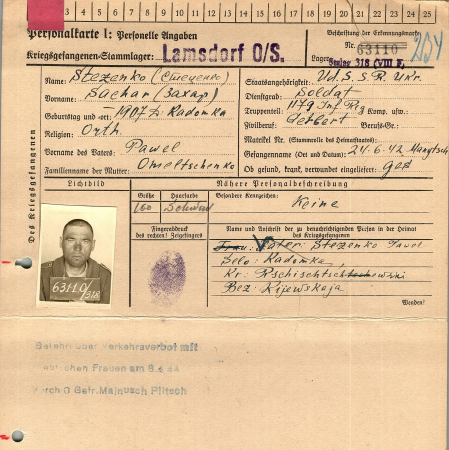 3 4 5 6 7 8 9 10 11 12 13 14 15 16 17 18 19 20 21 22 23 24 25
Personalkarte I: Personelle Angaben
Beschriftung der Erkennungsmarke
Kriegsgefangenen-Stammlager: Lamsdorf O/S.
Nr. 63110 204
Lager: Stalag 318 (VIII F)
Des Kriegsgefangenen
Name: Stezenko (Стеценко)
Vorname: Sachar (Захар)
Geburtstag und -ort: 1907 Radomka
Religion: Orth.
Vorname des Vaters: Pawel
Familienname der Mutter: Omeltschenko
Staatsangehörigkeit: Ud.S.S.R. Ukr.
Dienstgrad: Soldat
Truppenteil: 1179 Inf. Reg Komp. usw.:
Zivilberuf: Berufs-Gr.:
Matrikel Nr. (Stammrolle des Heimatstaates):
Gefangennahme (Ort und Datum): 24.6.42
Ob gesund, krank, verwundet eingeliefert: ges
Lichtbild
63110/318
Nähere Personalbeschreibung
Größe Haarfarbe Besondere Kennzeichen:
1,60 Schwarz Keine
Fingerabdruck
des rechten! Zeigefingers
Name und Anschrift der zu benachrichtigenden Person in der Heimat
des Kriegsgefangenen
Frau: Vater: Stezenko Pawel
Selo: Radomka,
Kr:
Bez: Kijewskaja
Wenden!
Belehrt über Verkehrsverbot mit
deutschen Frauen am
durch Gefr. Majnusch Pitsch